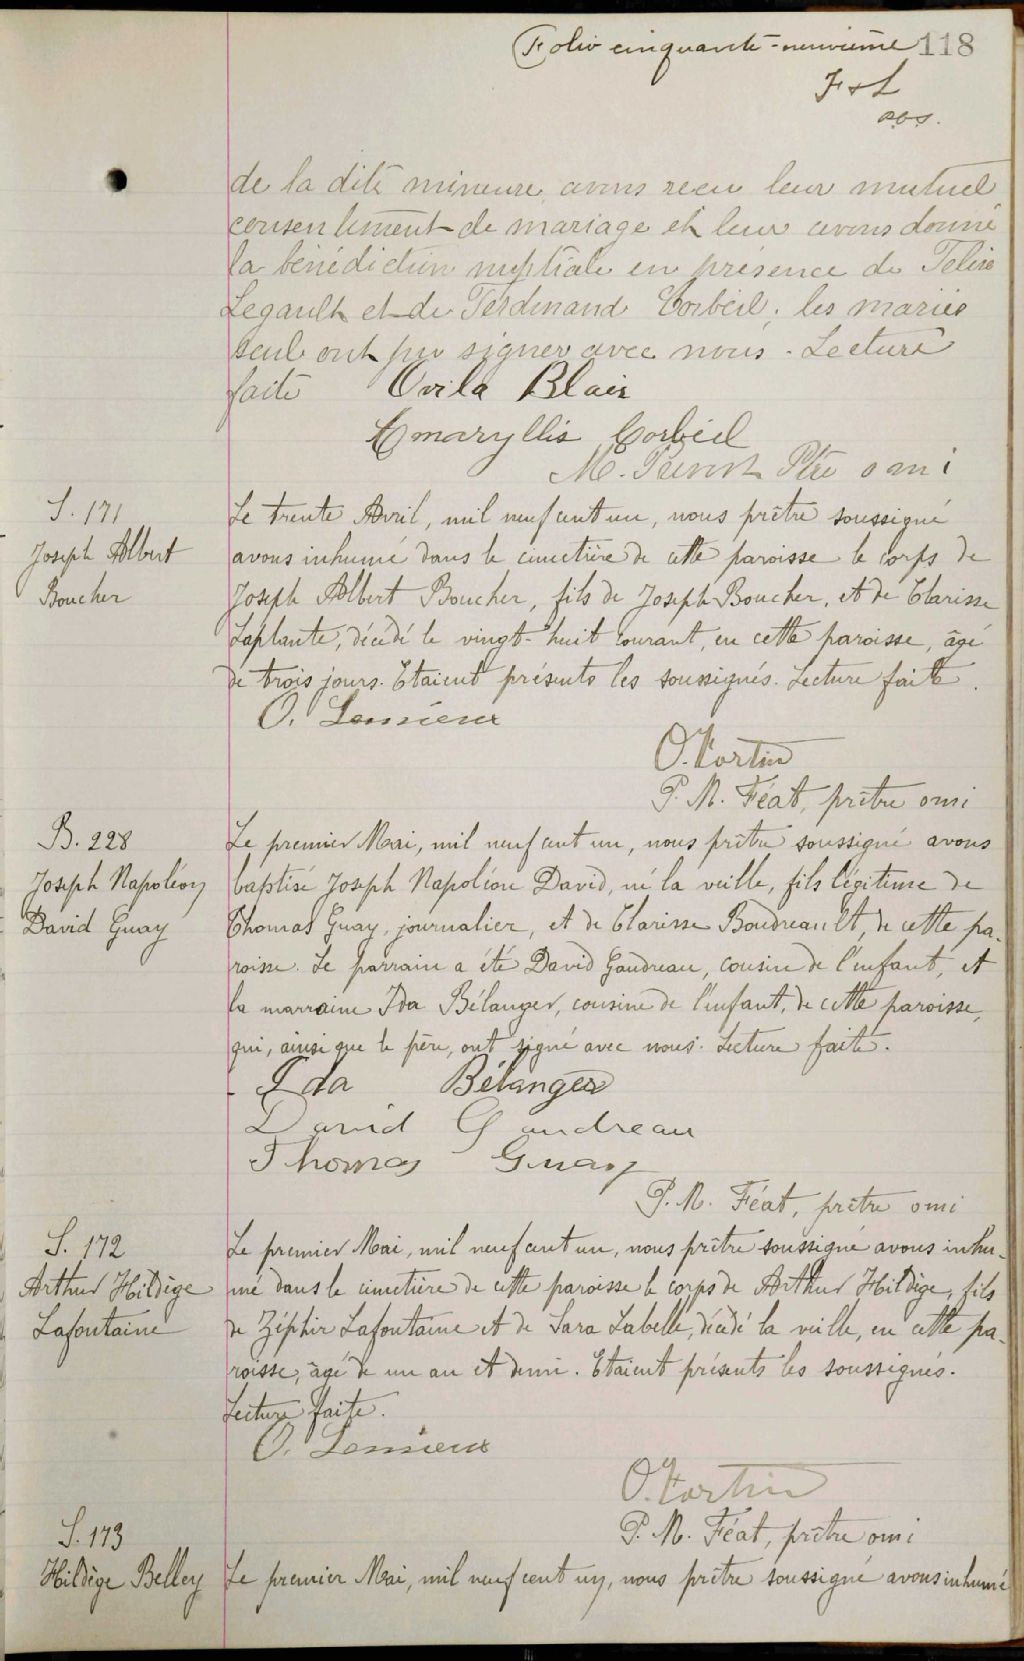 Folio cinquante-neuvième 118
F & L
p.b.s.
de la dite mineure avons reçu leur mutuel
consentement de mariage et leur avons donné
la bénédiction nuptiale en présence de
Legault et de Ferdinand Corbeil; les mariés
seul ont pu signer avec nous. Lecture
faite Ovila Blair
Amaryllis Corbeil
M. Ptre omi
S. 171
Joseph Albert
Boucher
Le trente Avril, mil neuf cent un, nous prêtre soussigné
avons inhumé dans le cimetière de cette paroisse le corps de
Joseph Albert Boucher, fils de Joseph Boucher, et de Clarisse
Laplante, décédé le vingt-huit courant, en cette paroisse, âgé
de trois jours. Etaient présents les soussignés. Lecture faite.
O. Lemieux
O. Fortin
P. M. Féat, prêtre omi
B. 228
Joseph Napoléon
David Guay
Le premier Mai, mil neuf cent un, nous prêtre soussigné avons
baptisé Joseph Napoléon David, né la veille, fils légitime de
Thomas Guay, journalier, et de Clarisse Boudreault, de cette pa-
roisse. Le parrain a été David Gaudreau, cousin de l'enfant, et
la marraine Ida Bélanger, cousine de l'enfant, de cette paroisse,
qui, ainsi que le père, ont signé avec nous. Lecture faite.
Ida Bélanger
David Gaudreau
Thomas Guay
P. M. Féat, prêtre omi
S. 172
Arthur Hildège
Lafontaine
Le premier Mai, mil neuf cent un, nous prêtre soussigné avons inhu-
mé dans le cimetière de cette paroisse le corps de Arthur Hildège, fils
de Zéphir Lafontaine et de Sara Labelle, décédé la veille, en cette pa-
roisse, âgé de un an et demi. Etaient présents les soussignés.
Lecture faite.
O. Lemieux
O. Fortin
P. M. Féat, prêtre omi
S. 173
Hildège Belley
Le premier Mai, mil neuf cent un, nous prêtre soussigné avons inhumé